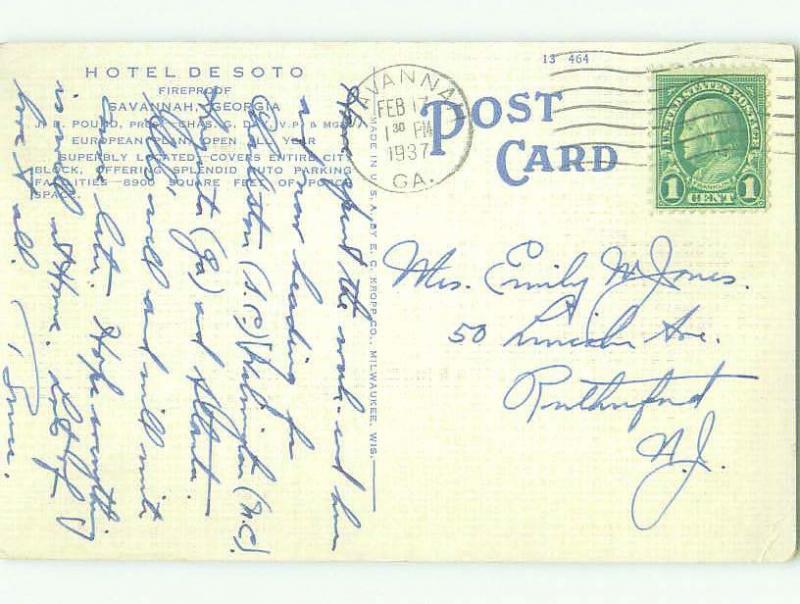 HOTEL DE SOTO
FIREPROOF
SAVANNAH, GEORGIA
J. B. POUND, PRES. CHAS. G. DAY, V.P. & MGR.
EUROPEAN PLAN, OPEN ALL YEAR
SUPERBLY LOCATED, COVERS ENTIRE CITY
BLOCK, OFFERING SPLENDID AUTO PARKING
FACILITIES 8900 SQUARE FEET OF PORCH
SPACE.
Have spent the week-end here
and now heading for
Charleston (S.C.) Wilmington (N.C.)
Augusta (Ga) and Atlanta.
All's well and will write
more later. Hope everything
is well at Home.
love to all.
MADE IN U.S.A. BY E. C. KROPP CO., MILWAUKEE, WIS.
SAVANNAH
FEB 17
1 30 PM
1937
GA.
13 464
POST
CARD
UNITED STATES POSTAGE
FRANKLIN
1 CENT 1
Mrs. Emily M. Jones.
50 Lincoln Ave.
Rutherford
N.J.